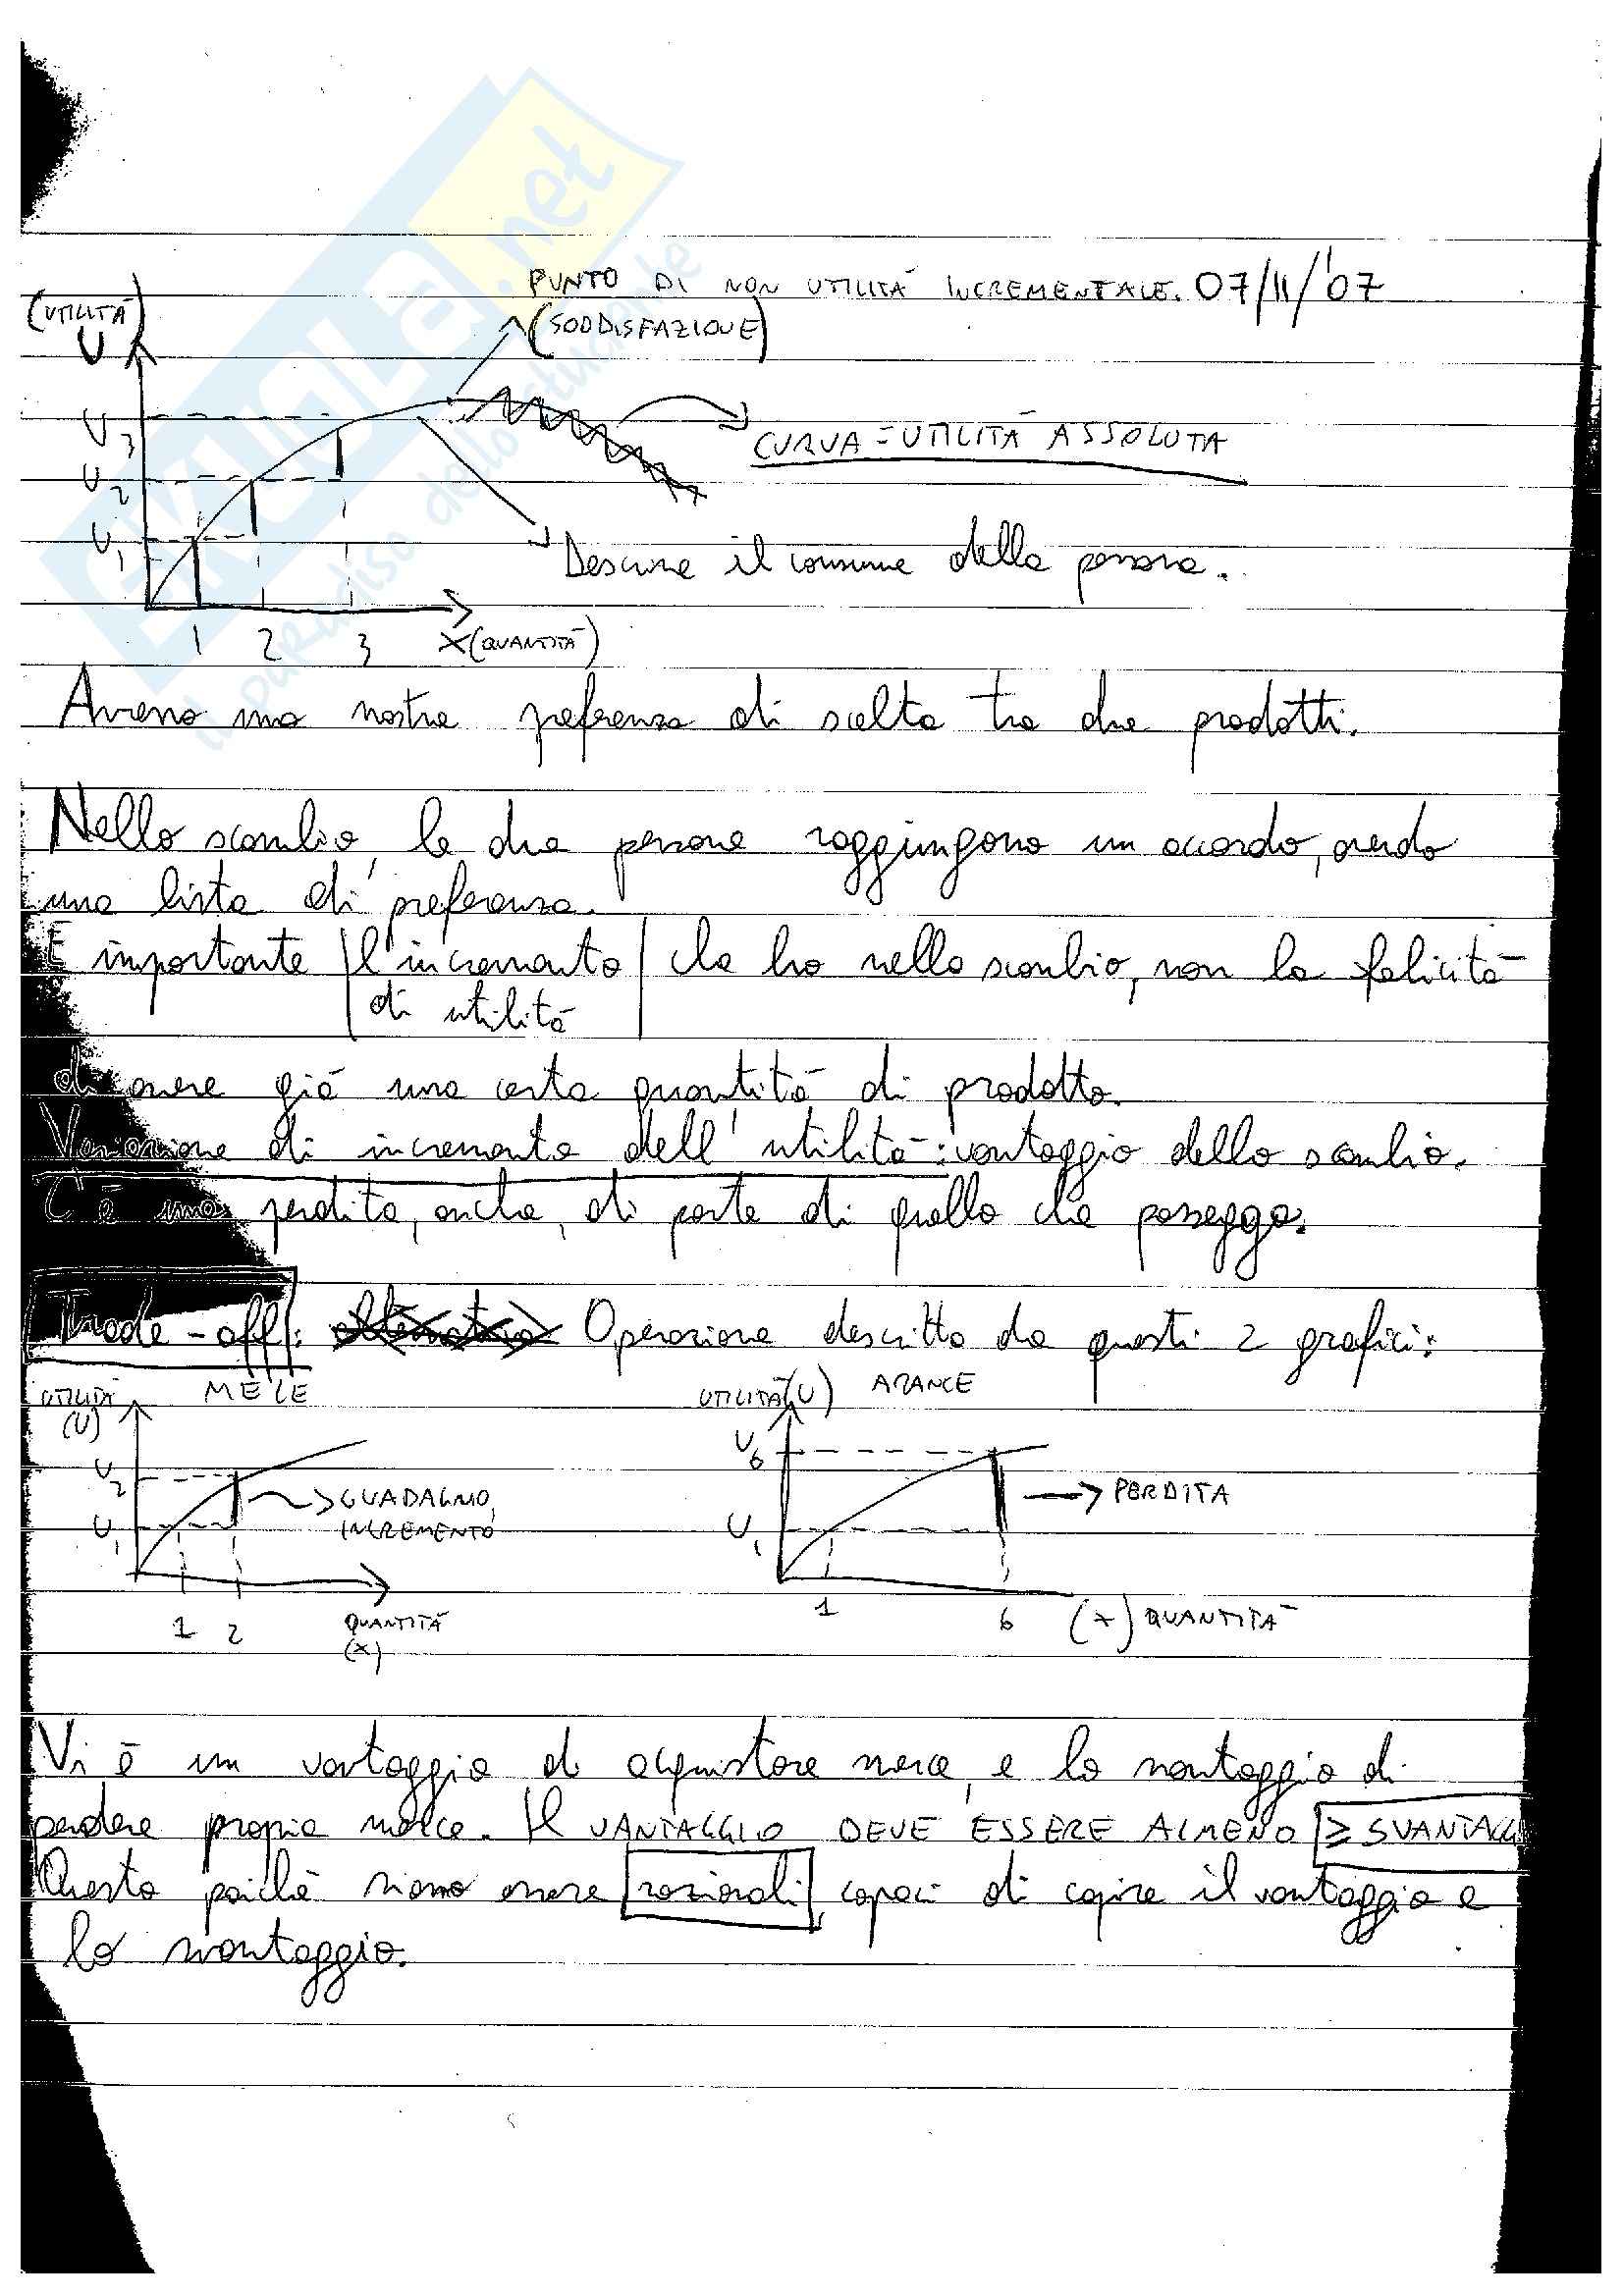 PUNTO DI NON UTILITÀ INCREMENTALE. 07/11/'07
(UTILITÀ)
(SODDISFAZIONE)
U
U3
CURVA = UTILITÀ ASSOLUTA
U2
U1
Descrive il consumo della persona.
1 2 3 X (QUANTITÀ)
Avremo una nostra preferenza di scelta tra due prodotti.
Nello scambio, le due persone raggiungono un accordo, avendo
una lista di preferenza.
È importante l'incremento che ho nello scambio, non la felicità
di utilità
di avere già una certa quantità di prodotto.
Variazione di incremento dell'utilità: vantaggio dello scambio.
C'è una perdita, anche, di parte di quello che posseggo.
Trade-off: Operazione descritta da questi 2 grafici:
UTILITÀ (U) MELE
U2
U1
GUADAGNO, INCREMENTO
1 2 QUANTITÀ (X)
UTILITÀ (U) ARANCE
U6
U1
PERDITA
1 6 (X) QUANTITÀ
Vi è un vantaggio di acquistare merce, e lo svantaggio di
perdere propria merce. Il VANTAGGIO DEVE ESSERE ALMENO ≥ SVANTAGGI
Questo poiché siamo esseri razionali, capaci di capire il vantaggio e
lo svantaggio.
SKUOLA.net
il paradiso dello studente